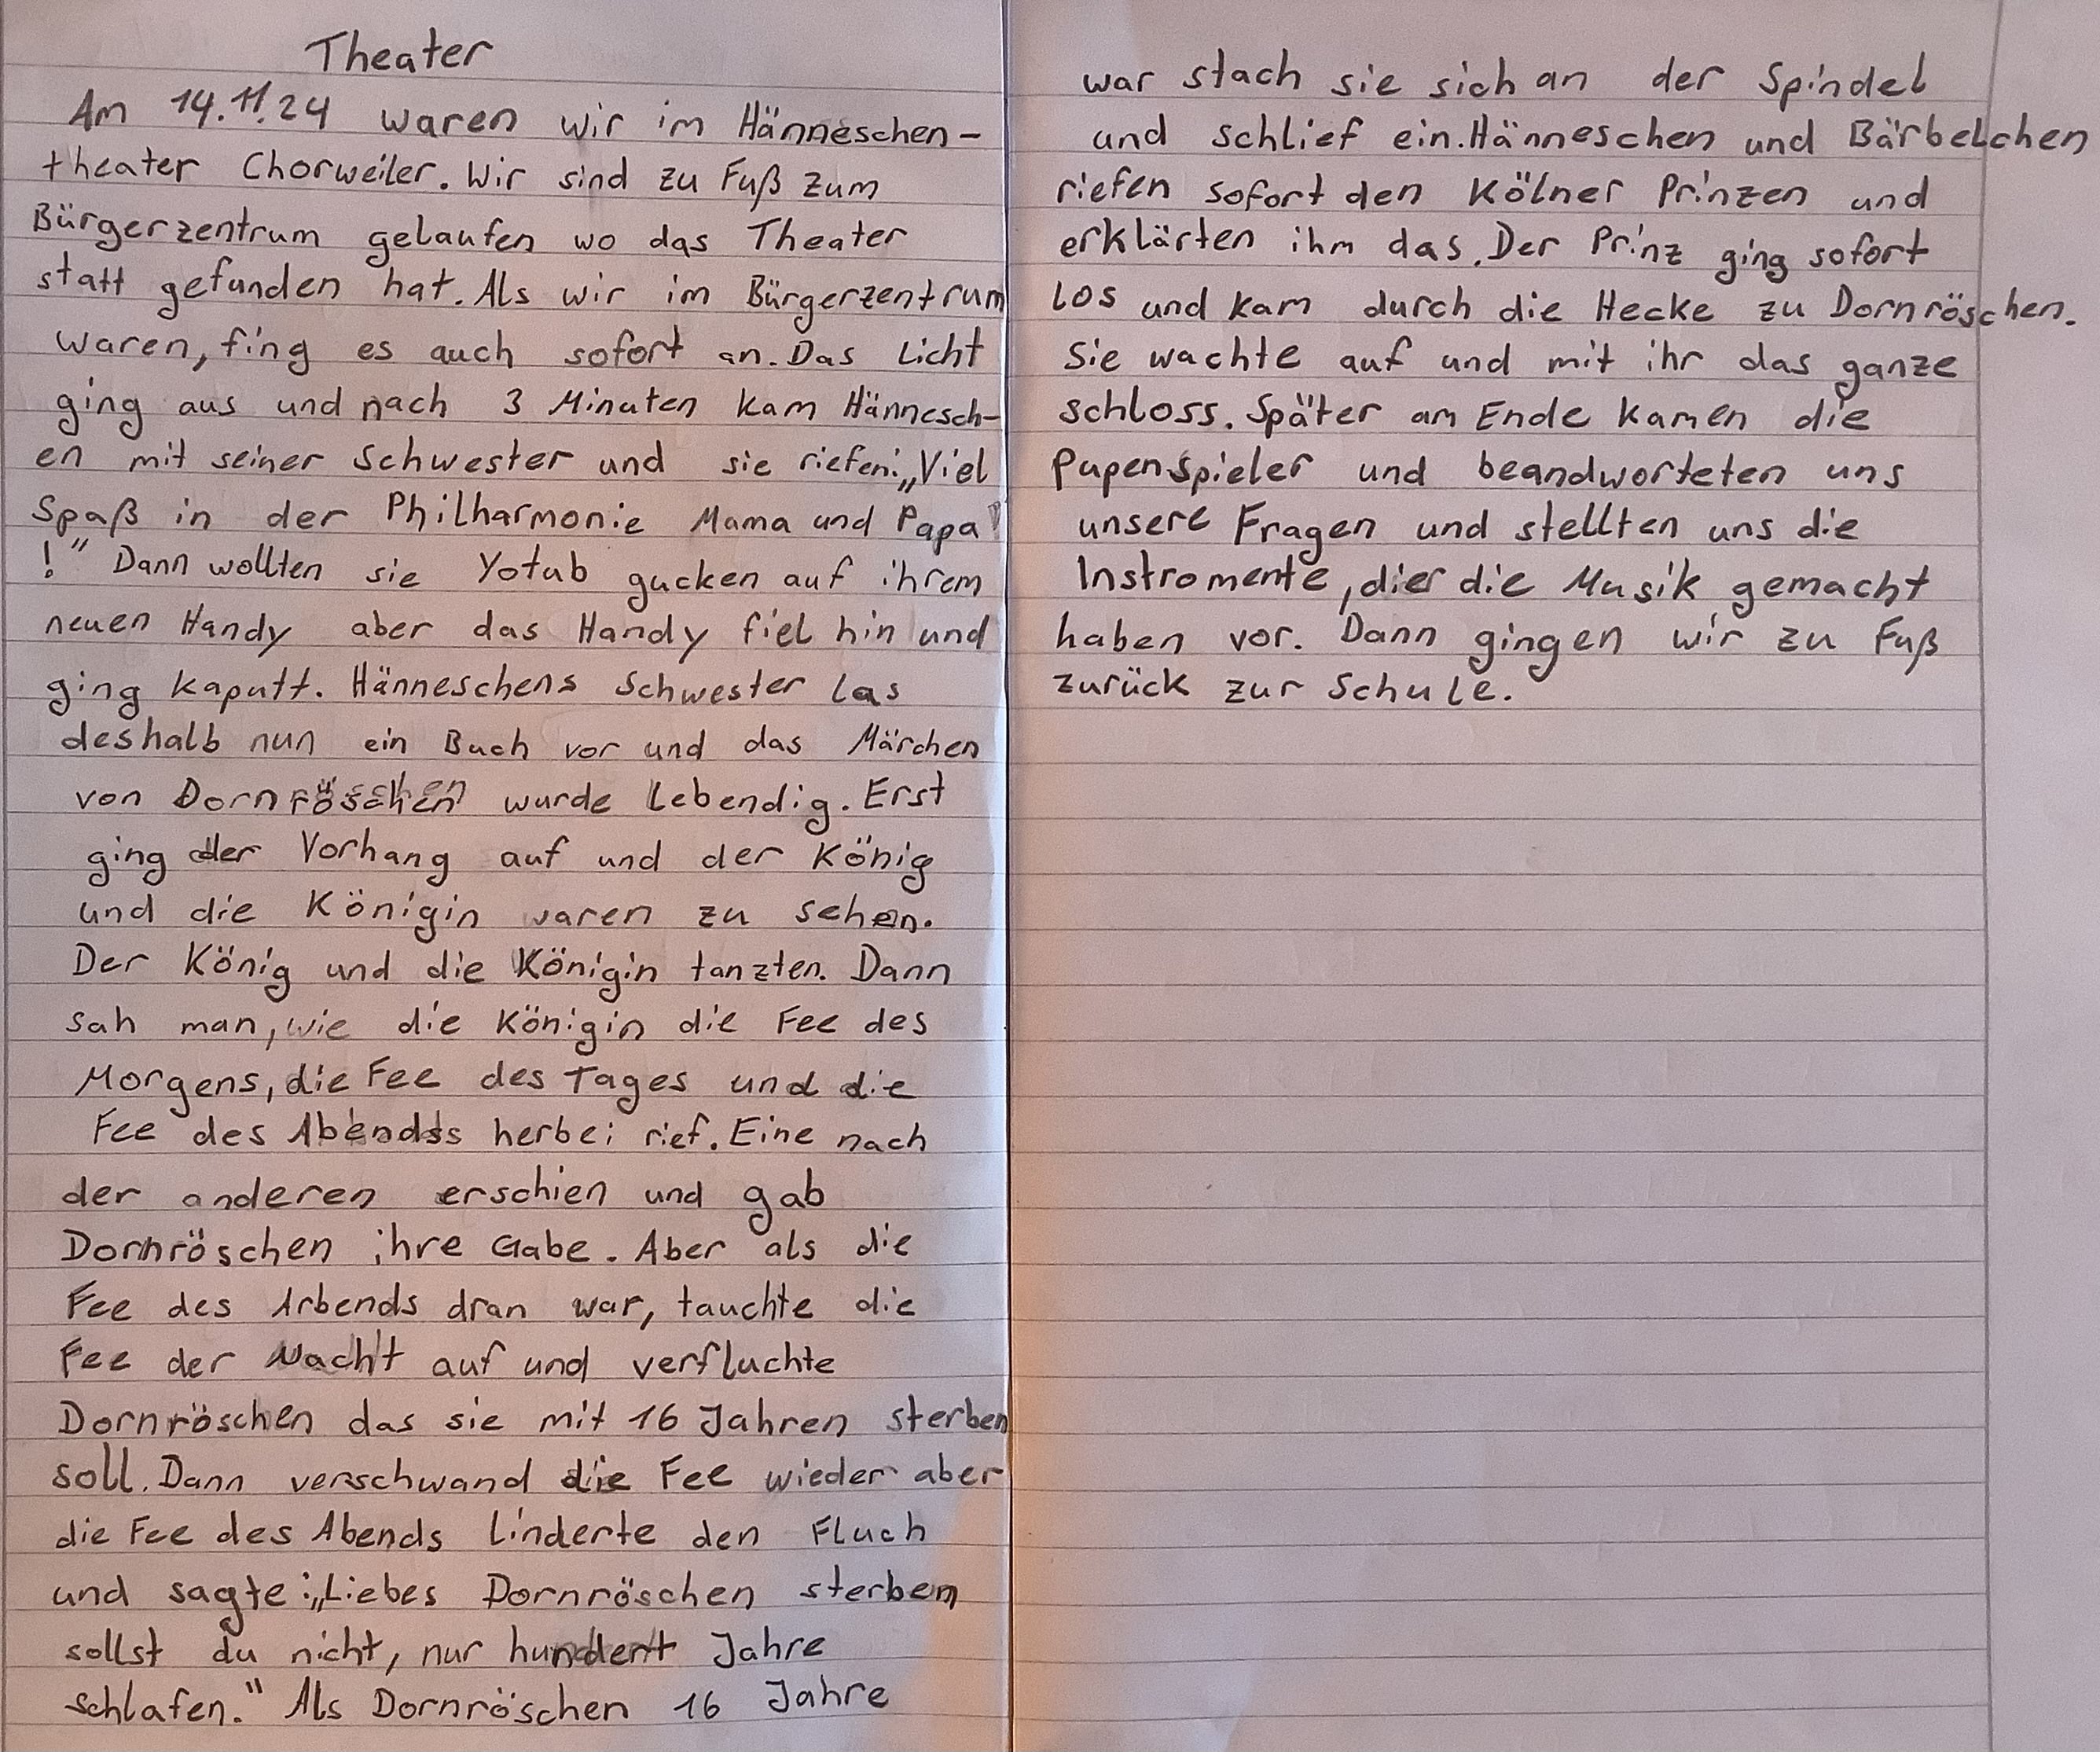 Theater
Am 14.11.24 waren wir im Hänneschen-
theater Chorweiler. Wir sind zu Fuß zum
Bürgerzentrum gelaufen wo das Theater
statt gefunden hat. Als wir im Bürgerzentrum
waren, fing es auch sofort an. Das Licht
ging aus und nach 3 Minuten kam Hännesch-
en mit seiner Schwester und sie riefen: „Viel
Spaß in der Philharmonie Mama und Papa
!" Dann wollten sie Yotub gucken auf ihrem
neuen Handy aber das Handy fiel hin und
ging kaputt. Hänneschens Schwester las
deshalb nun ein Buch vor und das Märchen
von Dornröschen wurde lebendig. Erst
ging der Vorhang auf und der König
und die Königin waren zu sehen.
Der König und die Königin tanzten. Dann
sah man, wie die Königin die Fee des
Morgens, die Fee des Tages und die
Fee des Abends herbei rief. Eine nach
der anderen erschien und gab
Dornröschen ihre Gabe. Aber als die
Fee des Arbends dran war, tauchte die
Fee der Nacht auf und verfluchte
Dornröschen das sie mit 16 Jahren sterben
soll. Dann verschwand die Fee wieder aber
die Fee des Abends linderte den Fluch
und sagte: „Liebes Dornröschen sterben
sollst du nicht, nur hundert Jahre
schlafen." Als Dornröschen 16 Jahre
war stach sie sich an der Spindel
und schlief ein. Hänneschen und Bärbelchen
riefen sofort den Kölner Prinzen und
erklärten ihm das. Der Prinz ging sofort
los und kam durch die Hecke zu Dornröschen.
Sie wachte auf und mit ihr das ganze
schloss. Später am Ende kamen die
Pupenspieler und beandworteten uns
unsere Fragen und stellten uns die
Instromente, dier die Musik gemacht
haben vor. Dann gingen wir zu Fuß
zurück zur Schule.